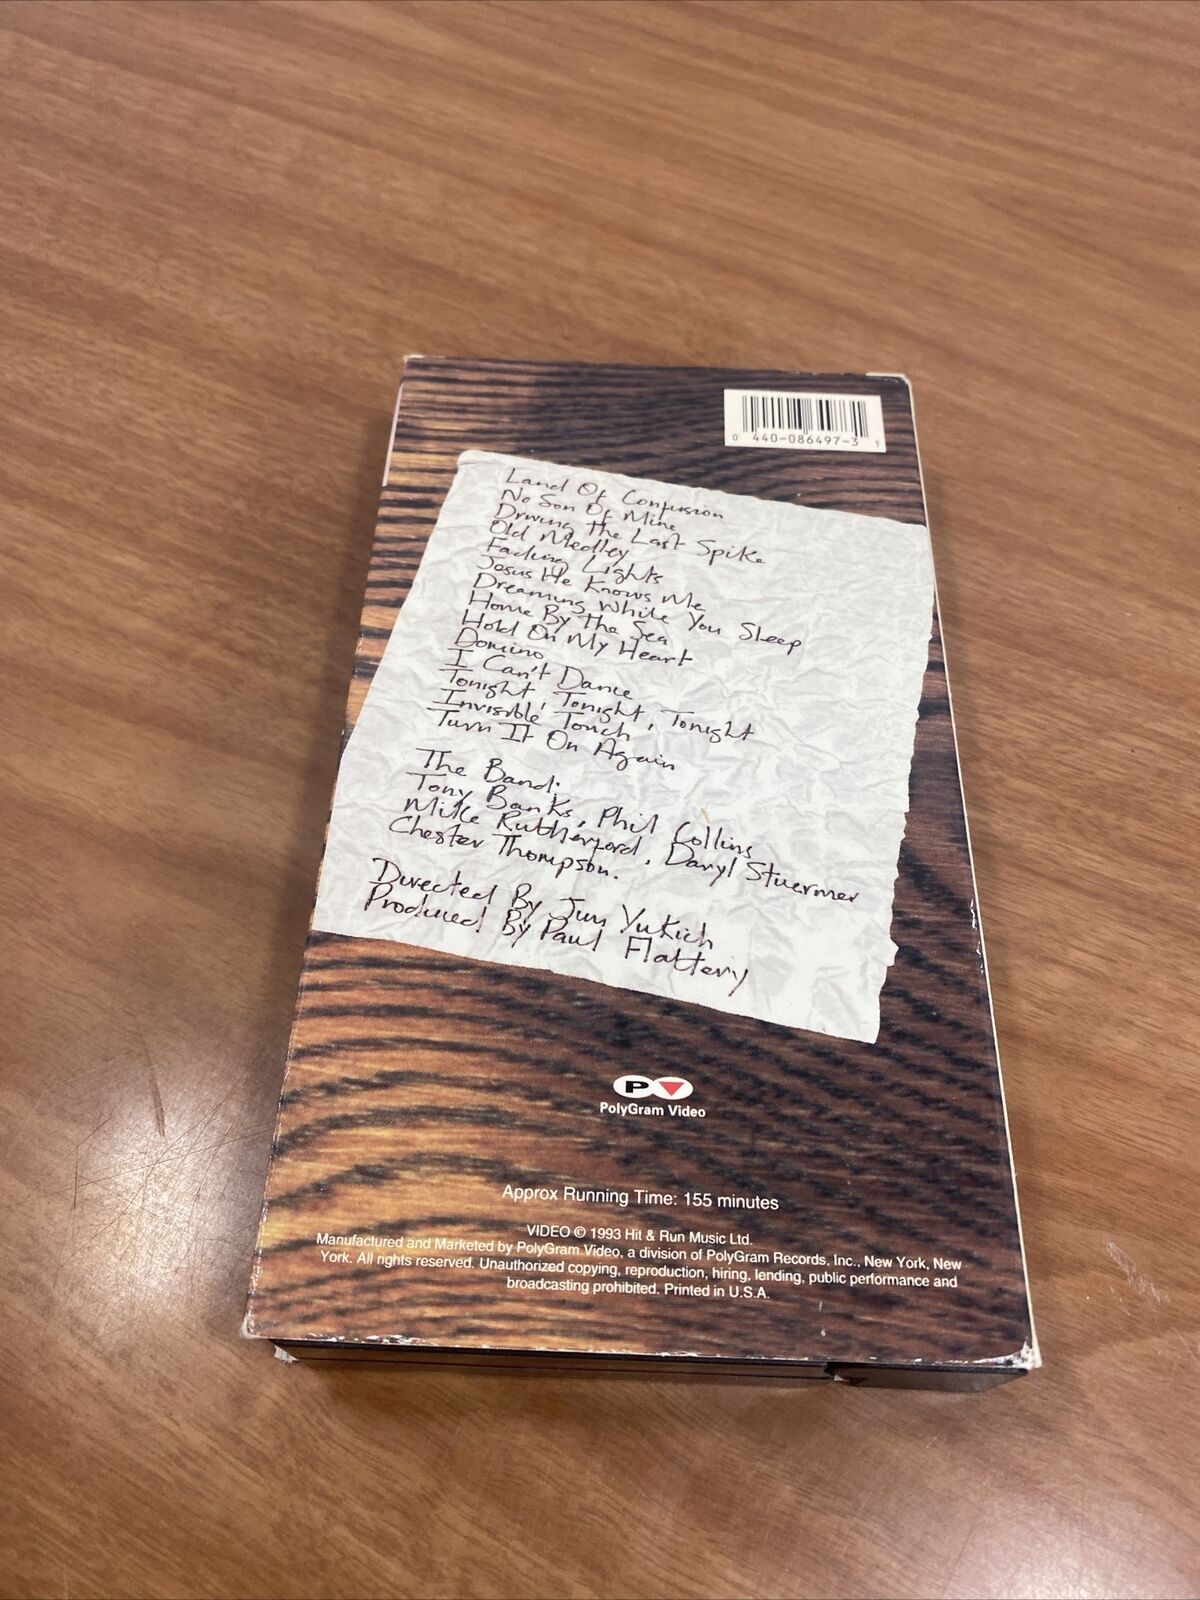 0 440-086497-3 1
Land Of Confusion
No Son Of Mine
Driving the Last Spike
Old Medley
Fading Lights
Jesus He Knows Me
Dreaming While You Sleep
Home By The Sea
Hold On My Heart
Domino
I Can't Dance
Tonight, Tonight, Tonight
Invisible Touch
Turn It On Again
The Band:
Tony Banks, Phil Collins
Mike Rutherford, Daryl Stuermer
Chester Thompson.
Directed By Jim Yukich
Produced By Paul Flattery
P
PolyGram Video
Approx Running Time: 155 minutes
VIDEO © 1993 Hit & Run Music Ltd.
Manufactured and Marketed by PolyGram Video, a division of PolyGram Records, Inc., New York, New
York. All rights reserved. Unauthorized copying, reproduction, hiring, lending, public performance and
broadcasting prohibited. Printed in U.S.A.